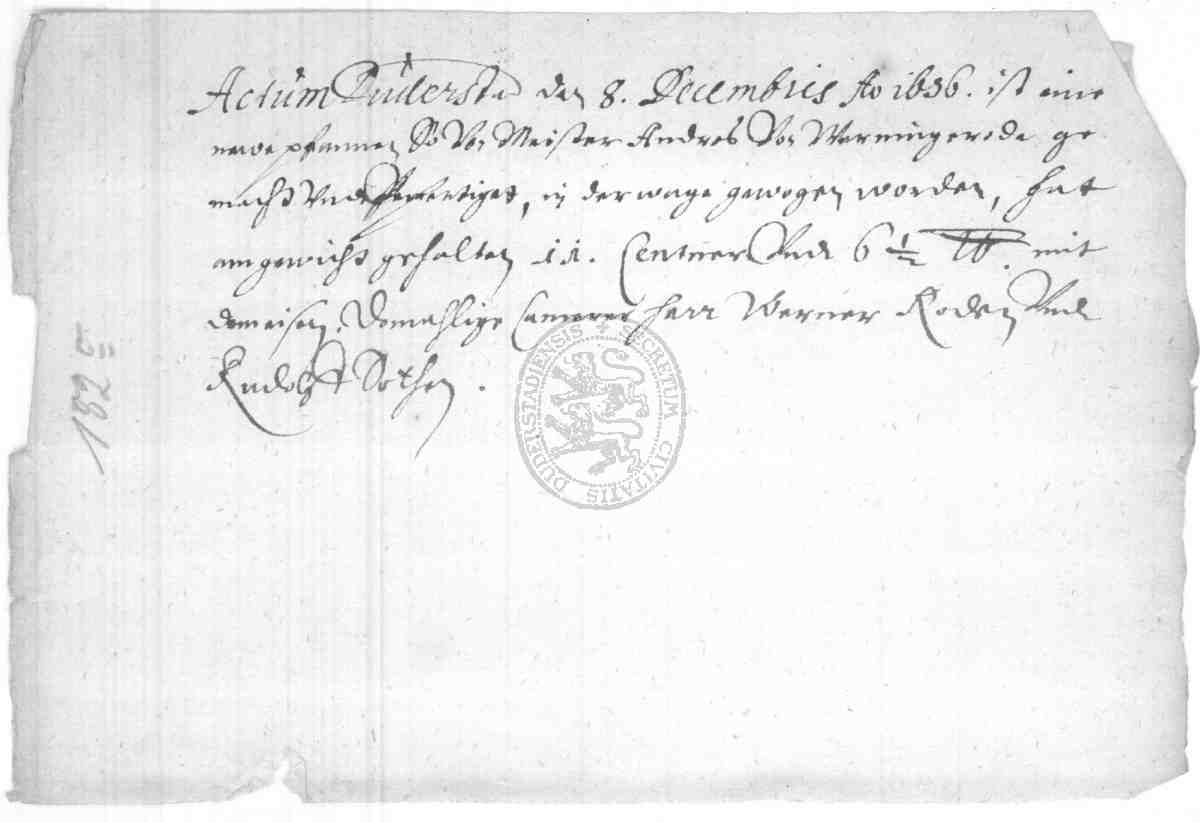 Actum Duderstad den 8. Decembris Ao 1656. ist eine
newe pfannen So von Meister Andres von Werningeroda ge
macht Vnd verfertiget, in der wage gewogen worden, hat
am gewicht gehalten 11. Centner Vnd 6 1/2 ℔. mit
dem eisen. Domahlige Camerer Herr Werner Roden Vnd
Rudolff Sothen.
182
SECRETUM CIVITATIS DUDERSTADIENSIS